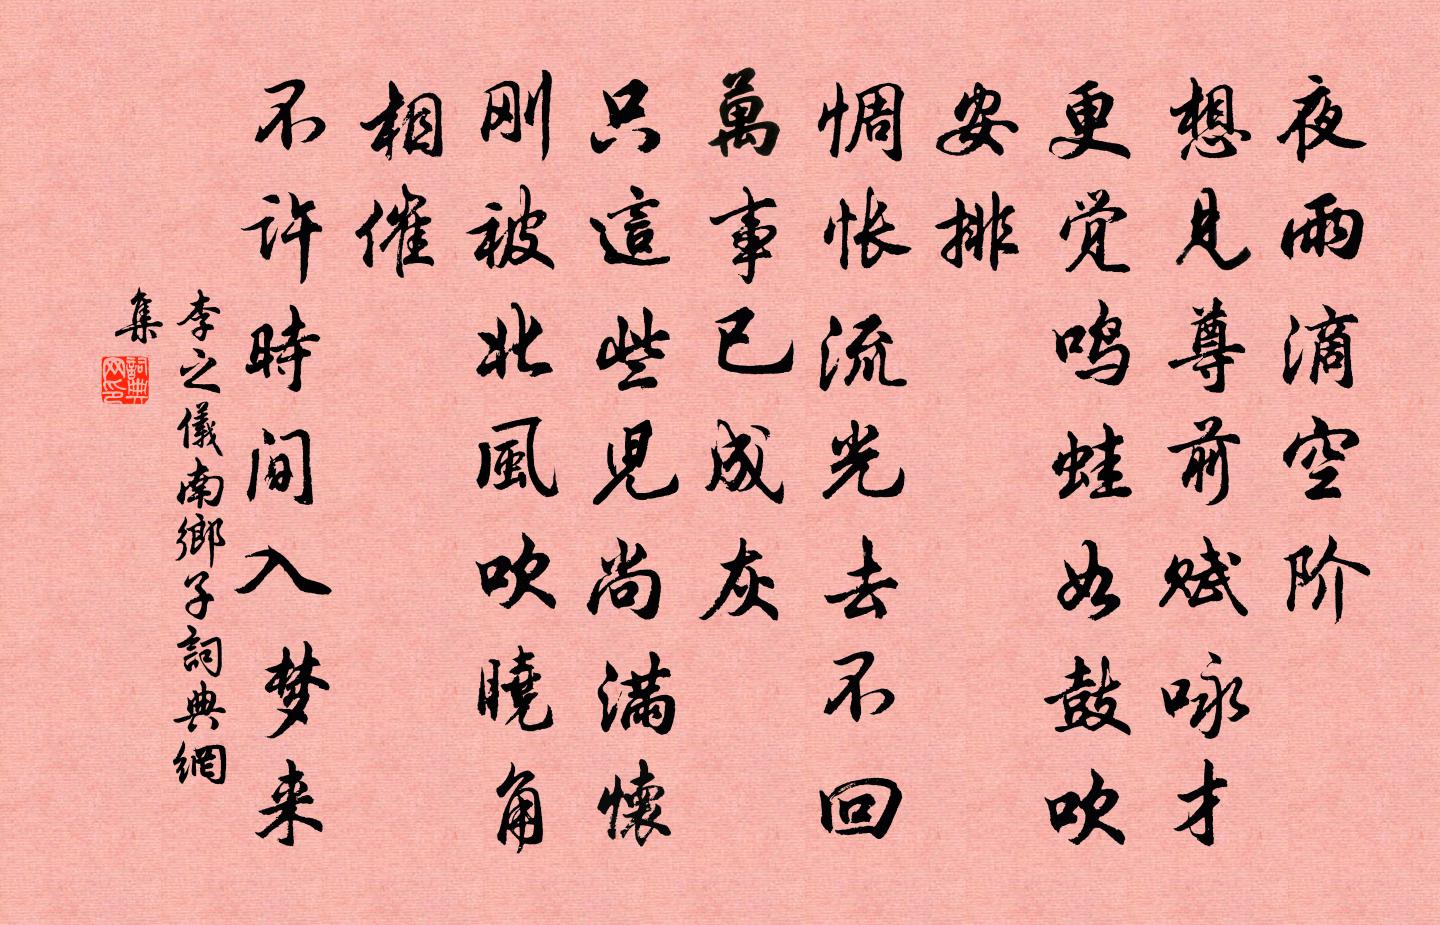 夜雨滴空阶
想見尊前赋咏才
更觉鸣蛙如鼓吹
安排
惆怅流光去不回
萬事已成灰
只這些兒尚滿懷
刚被北風吹曉角
相催
不许時间入梦来
李之儀南鄉子詞典網
集
詞典網印